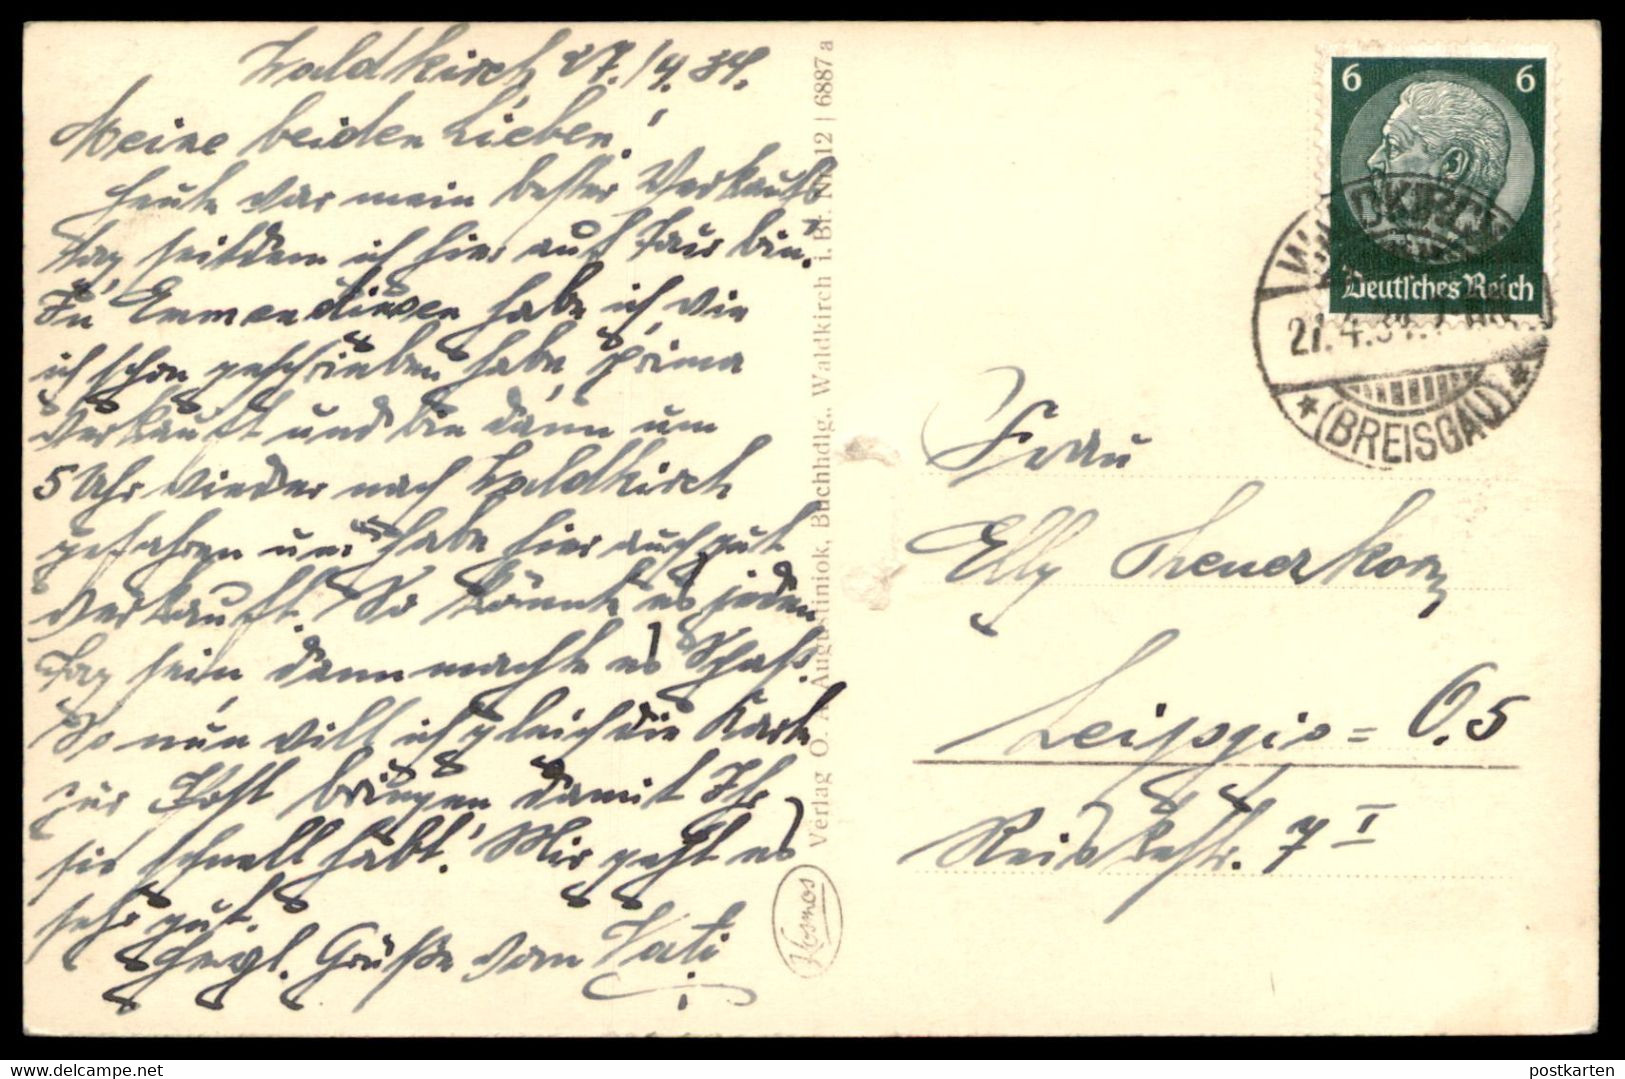 Waldkirch 27./4.34.
Meine beiden Lieben!
Heute war mein bester Verkaufs
tag seitdem ich hier auf Tour bin.
In Emmendingen habe ich wie
ich schon geschrieben habe prima
verkauft und bin dann um
5 Uhr wieder nach Waldkirch
gefahren und habe hier auch gut
verkauft. So könnte es jeden
Tag sein dann machte es Spaß.
So nun will ich gleich die Karte
zur Post bringen damit Ihr
sie schnell habt. Mir geht es
sehr gut.
Herzl. Grüße vom Vati
Verlag O. A. Augustiniok, Buchhdlg., Waldkirch i. Br. Nr. 12 | 6887 a
Kosmos
6 6
Deutsches Reich
WALDKIRCH
27.4.34.
(BREISGAU)
Frau
Elly Theuerkorn
Leipzig = O.5
Reiskestr. 7 I
postkarten